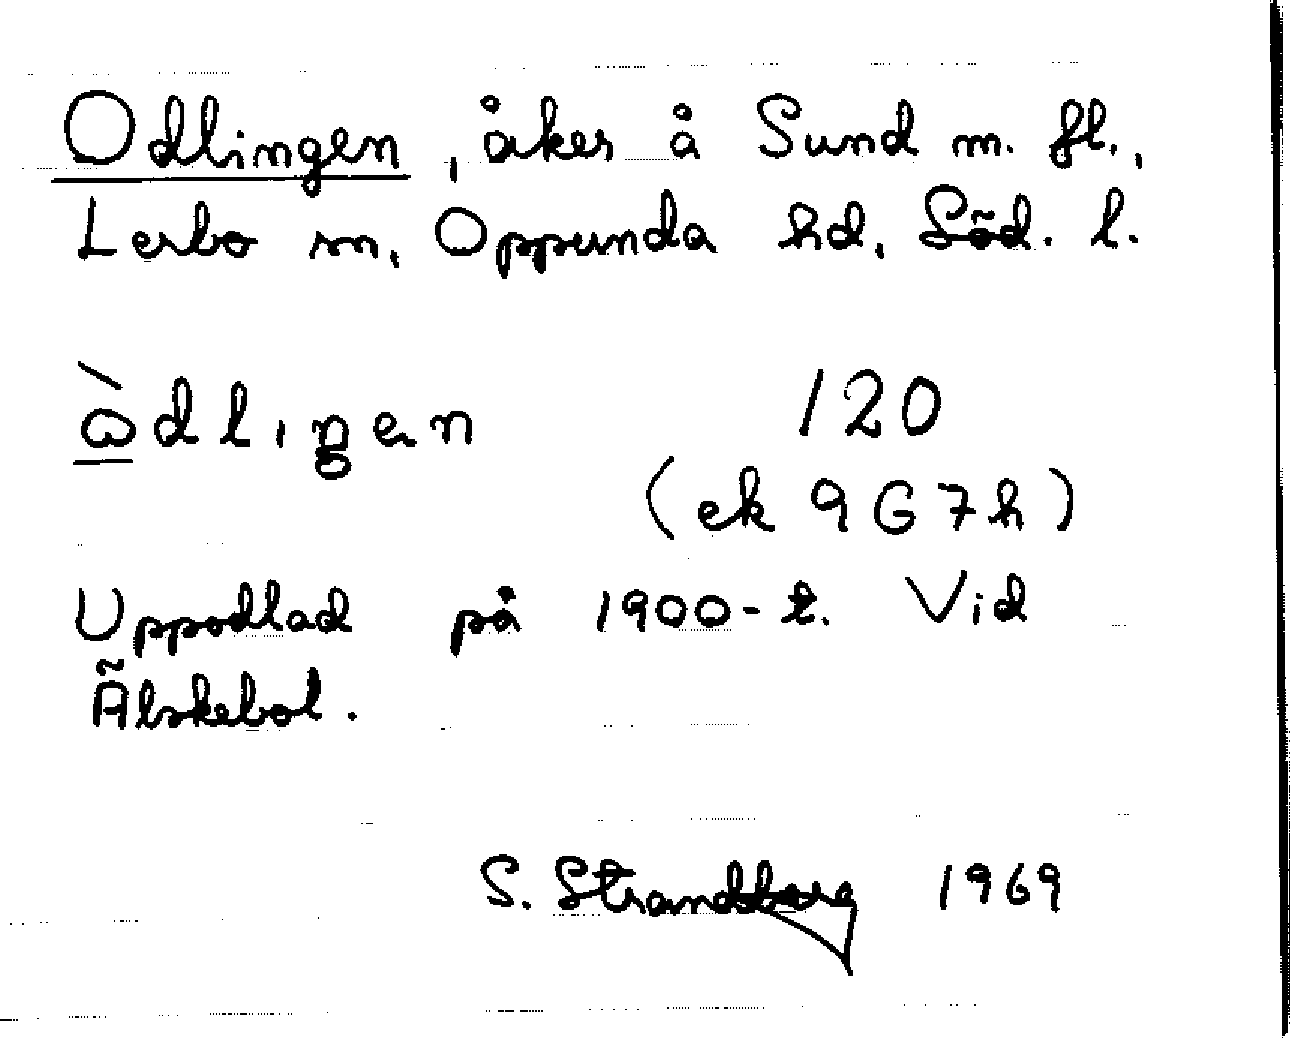 Odlingen, åker å Sund m. fl.,
Lerbo sn, Oppunda hd, Söd. l.
àdlıŋen 120
(ek 9G7h)
Uppodlad på 1900-t. Vid
Älskebol.
S. Strandberg 1969